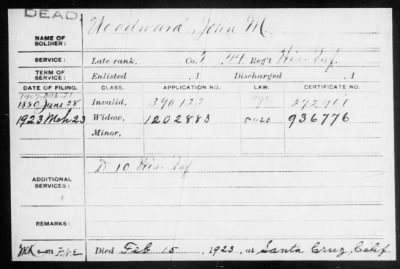 DEAD
Woodward, John M.
NAME OF SOLDIER:
SERVICE: Late rank, Co. 44 Reg't Wis. Inf.
TERM OF SERVICE: Enlisted , 1 Discharged , 1
DATE OF FILING. CLASS. APPLICATION NO. LAW. CERTIFICATE NO.
1880 June 28 Invalid,
1923 Mch 23 Widow, 1202883 936776
Minor,
D 10 Wis. Inf
ADDITIONAL SERVICES:
REMARKS:
Died Feb 15, 1923, at Santa Cruz, Calif.